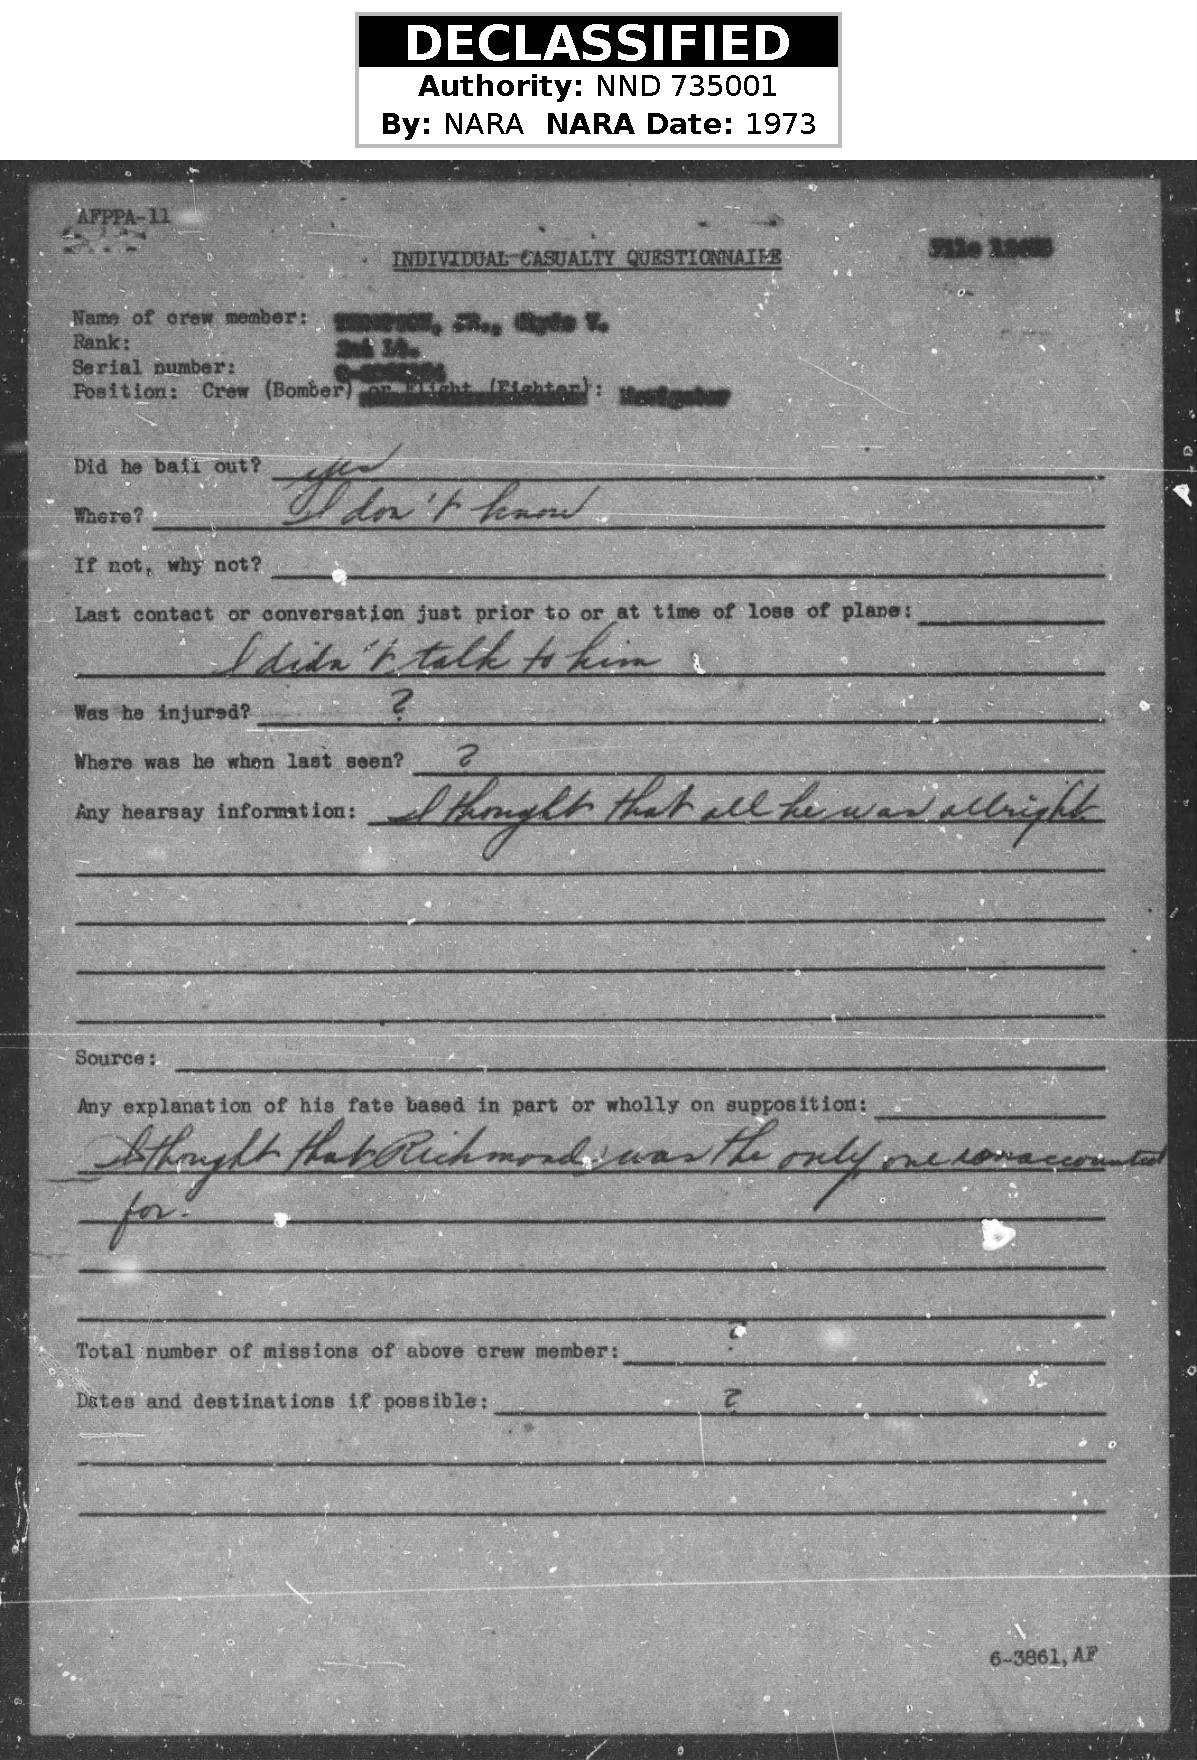 DECLASSIFIED
Authority: NND 735001
By: NARA NARA Date: 1973
AFPPA-11
INDIVIDUAL CASUALTY QUESTIONNAIRE
File
Name of crew member: JR., Clyde V.
Rank: 2nd Lt.
Serial number:
Position: Crew (Bomber) or Flight (Fighter): Navigator
Did he bail out? yes
Where? I don't know
If not, why not?
Last contact or conversation just prior to or at time of loss of plane:
I didn't talk to him
Was he injured? ?
Where was he when last seen? ?
Any hearsay information: I thought that all he was allright
Source:
Any explanation of his fate based in part or wholly on supposition:
I thought that Richmond was the only one unaccounted
for.
Total number of missions of above crew member: ?
Dates and destinations if possible: ?
6-3861, AF